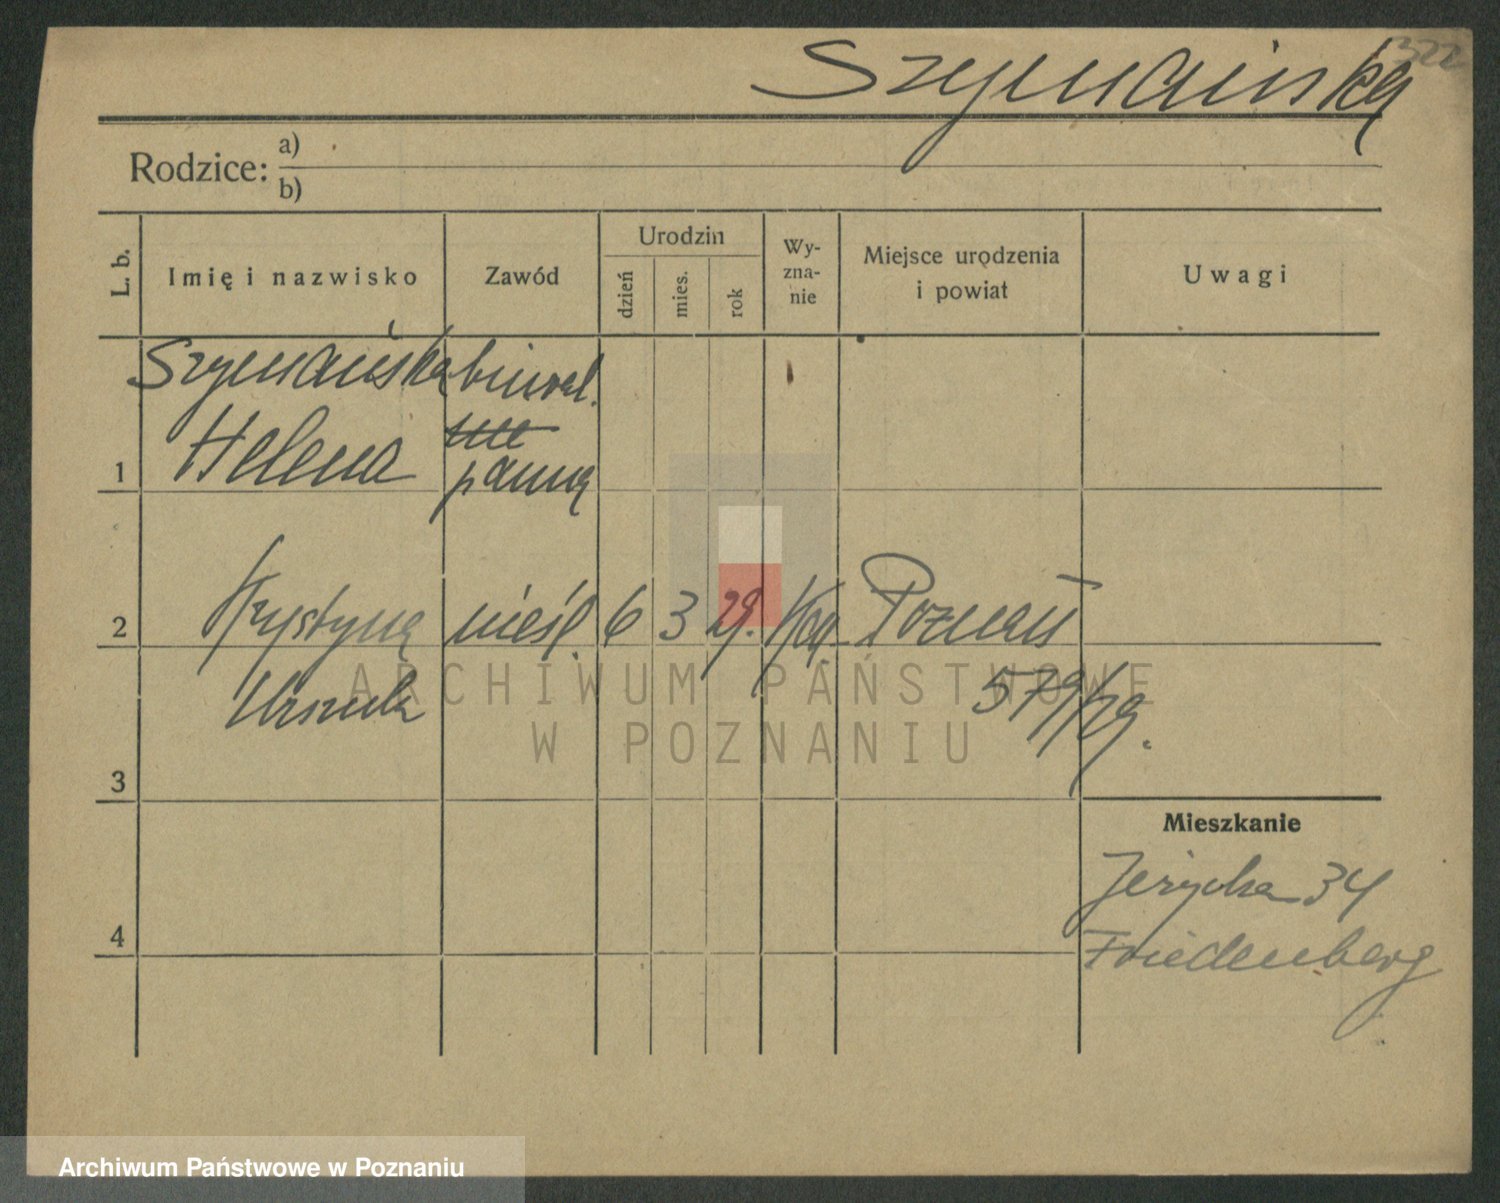 322
Szymańska
Rodzice: a)
b)
L. b.
Imię i nazwisko
Zawód
Urodzin
dzień
mies.
rok
Wy-
zna-
nie
Miejsce urodzenia
i powiat
Uwagi
Szymańska
Helena
panna
1
2
Krystyna nieśl. 6 3 29. Poznań
Urszula 579/29.
3
4
Mieszkanie
Jeżycka 34
Friedenberg
ARCHIWUM PAŃSTWOWE
W POZNANIU
Archiwum Państwowe w Poznaniu